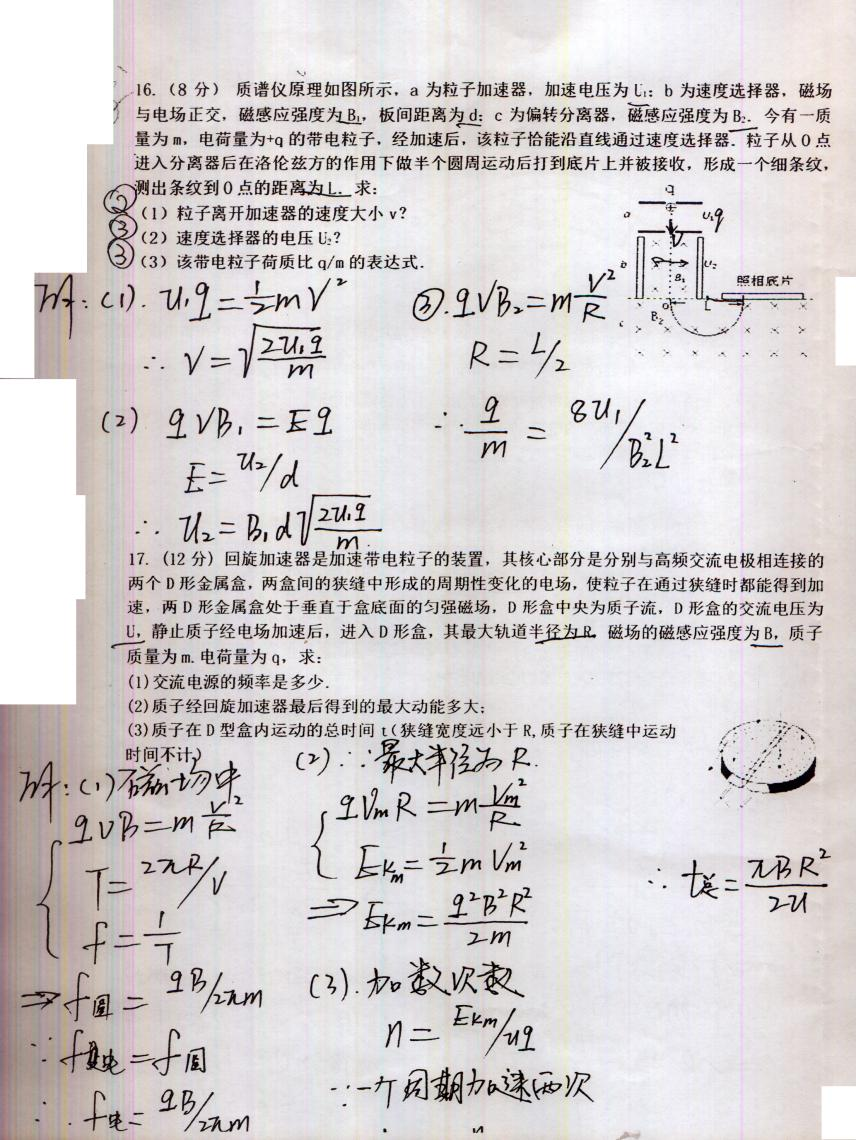 16.（8 分） 质谱仪原理如图所示，a 为粒子加速器，加速电压为 U₁；b 为速度选择器，磁场
与电场正交，磁感应强度为 B₁，板间距离为 d；c 为偏转分离器，磁感应强度为 B₂．今有一质
量为 m，电荷量为+q 的带电粒子，经加速后，该粒子恰能沿直线通过速度选择器．粒子从 O 点
进入分离器后在洛伦兹方的作用下做半个圆周运动后打到底片上并被接收，形成一个细条纹，
测出条纹到 O 点的距离为 L．求：
② （1）粒子离开加速器的速度大小 v？
③ （2）速度选择器的电压 U₂？
③ （3）该带电粒子荷质比 q/m 的表达式．
q
a U₁q
V
b B₁ U₂
照相底片
O L
B₂
c
解：(1). U₁q = ½mV²
∴ V = √(2U₁q/m)
(2) qVB₁ = Eq
E = U₂/d
∴ U₂ = B₁d√(2U₁q/m)
③. qVB₂ = m V²/R
R = L/2
∴ q/m = 8U₁/B₂²L²
17.（12 分）回旋加速器是加速带电粒子的装置，其核心部分是分别与高频交流电极相连接的
两个 D 形金属盒，两盒间的狭缝中形成的周期性变化的电场，使粒子在通过狭缝时都能得到加
速，两 D 形金属盒处于垂直于盒底面的匀强磁场，D 形盒中央为质子流，D 形盒的交流电压为
U，静止质子经电场加速后，进入 D 形盒，其最大轨道半径为 R．磁场的磁感应强度为 B，质子
质量为 m.电荷量为 q，求：
(1)交流电源的频率是多少．
(2)质子经回旋加速器最后得到的最大动能多大；
(3)质子在 D 型盒内运动的总时间 t(狭缝宽度远小于 R,质子在狭缝中运动
时间不计)
解：(1)磁场中
qVB = m V²/R
T = 2πR/V
f = 1/T
⇒ f圆 = qB/2πm
∵ f电 = f圆
∴ f电 = qB/2πm
(2) ∵最大半径为 R.
qVmR = m Vm²/R
Ekm = ½mVm²
⇒ Ekm = q²B²R²/2m
(3). 加数次数
n = Ekm/uq
∵一个周期加速两次
∴ t总 = πBR²/2U